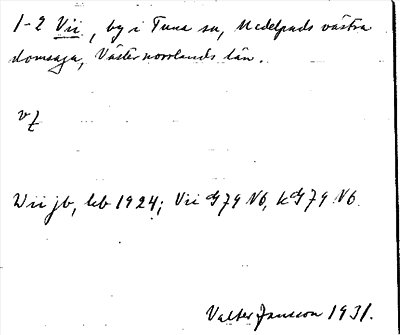 1-2 Vii, by i Tuna sn, Medelpads västra
domsaga, Västernorrlands län.
Wii jb, kb 1924; Vii GJ79 N6, kGJ79 N6.
Valter Jansson 1931.